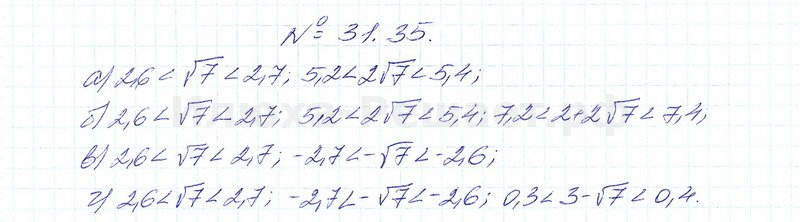 № 31.35.
а) 2,6 < √7 < 2,7; 5,2 < 2√7 < 5,4;
б) 2,6 < √7 < 2,7; 5,2 < 2√7 < 5,4; 7,2 < 2+2√7 < 7,4;
в) 2,6 < √7 < 2,7; -2,7 < -√7 < -2,6;
г) 2,6 < √7 < 2,7; -2,7 < -√7 < -2,6; 0,3 < 3-√7 < 0,4.